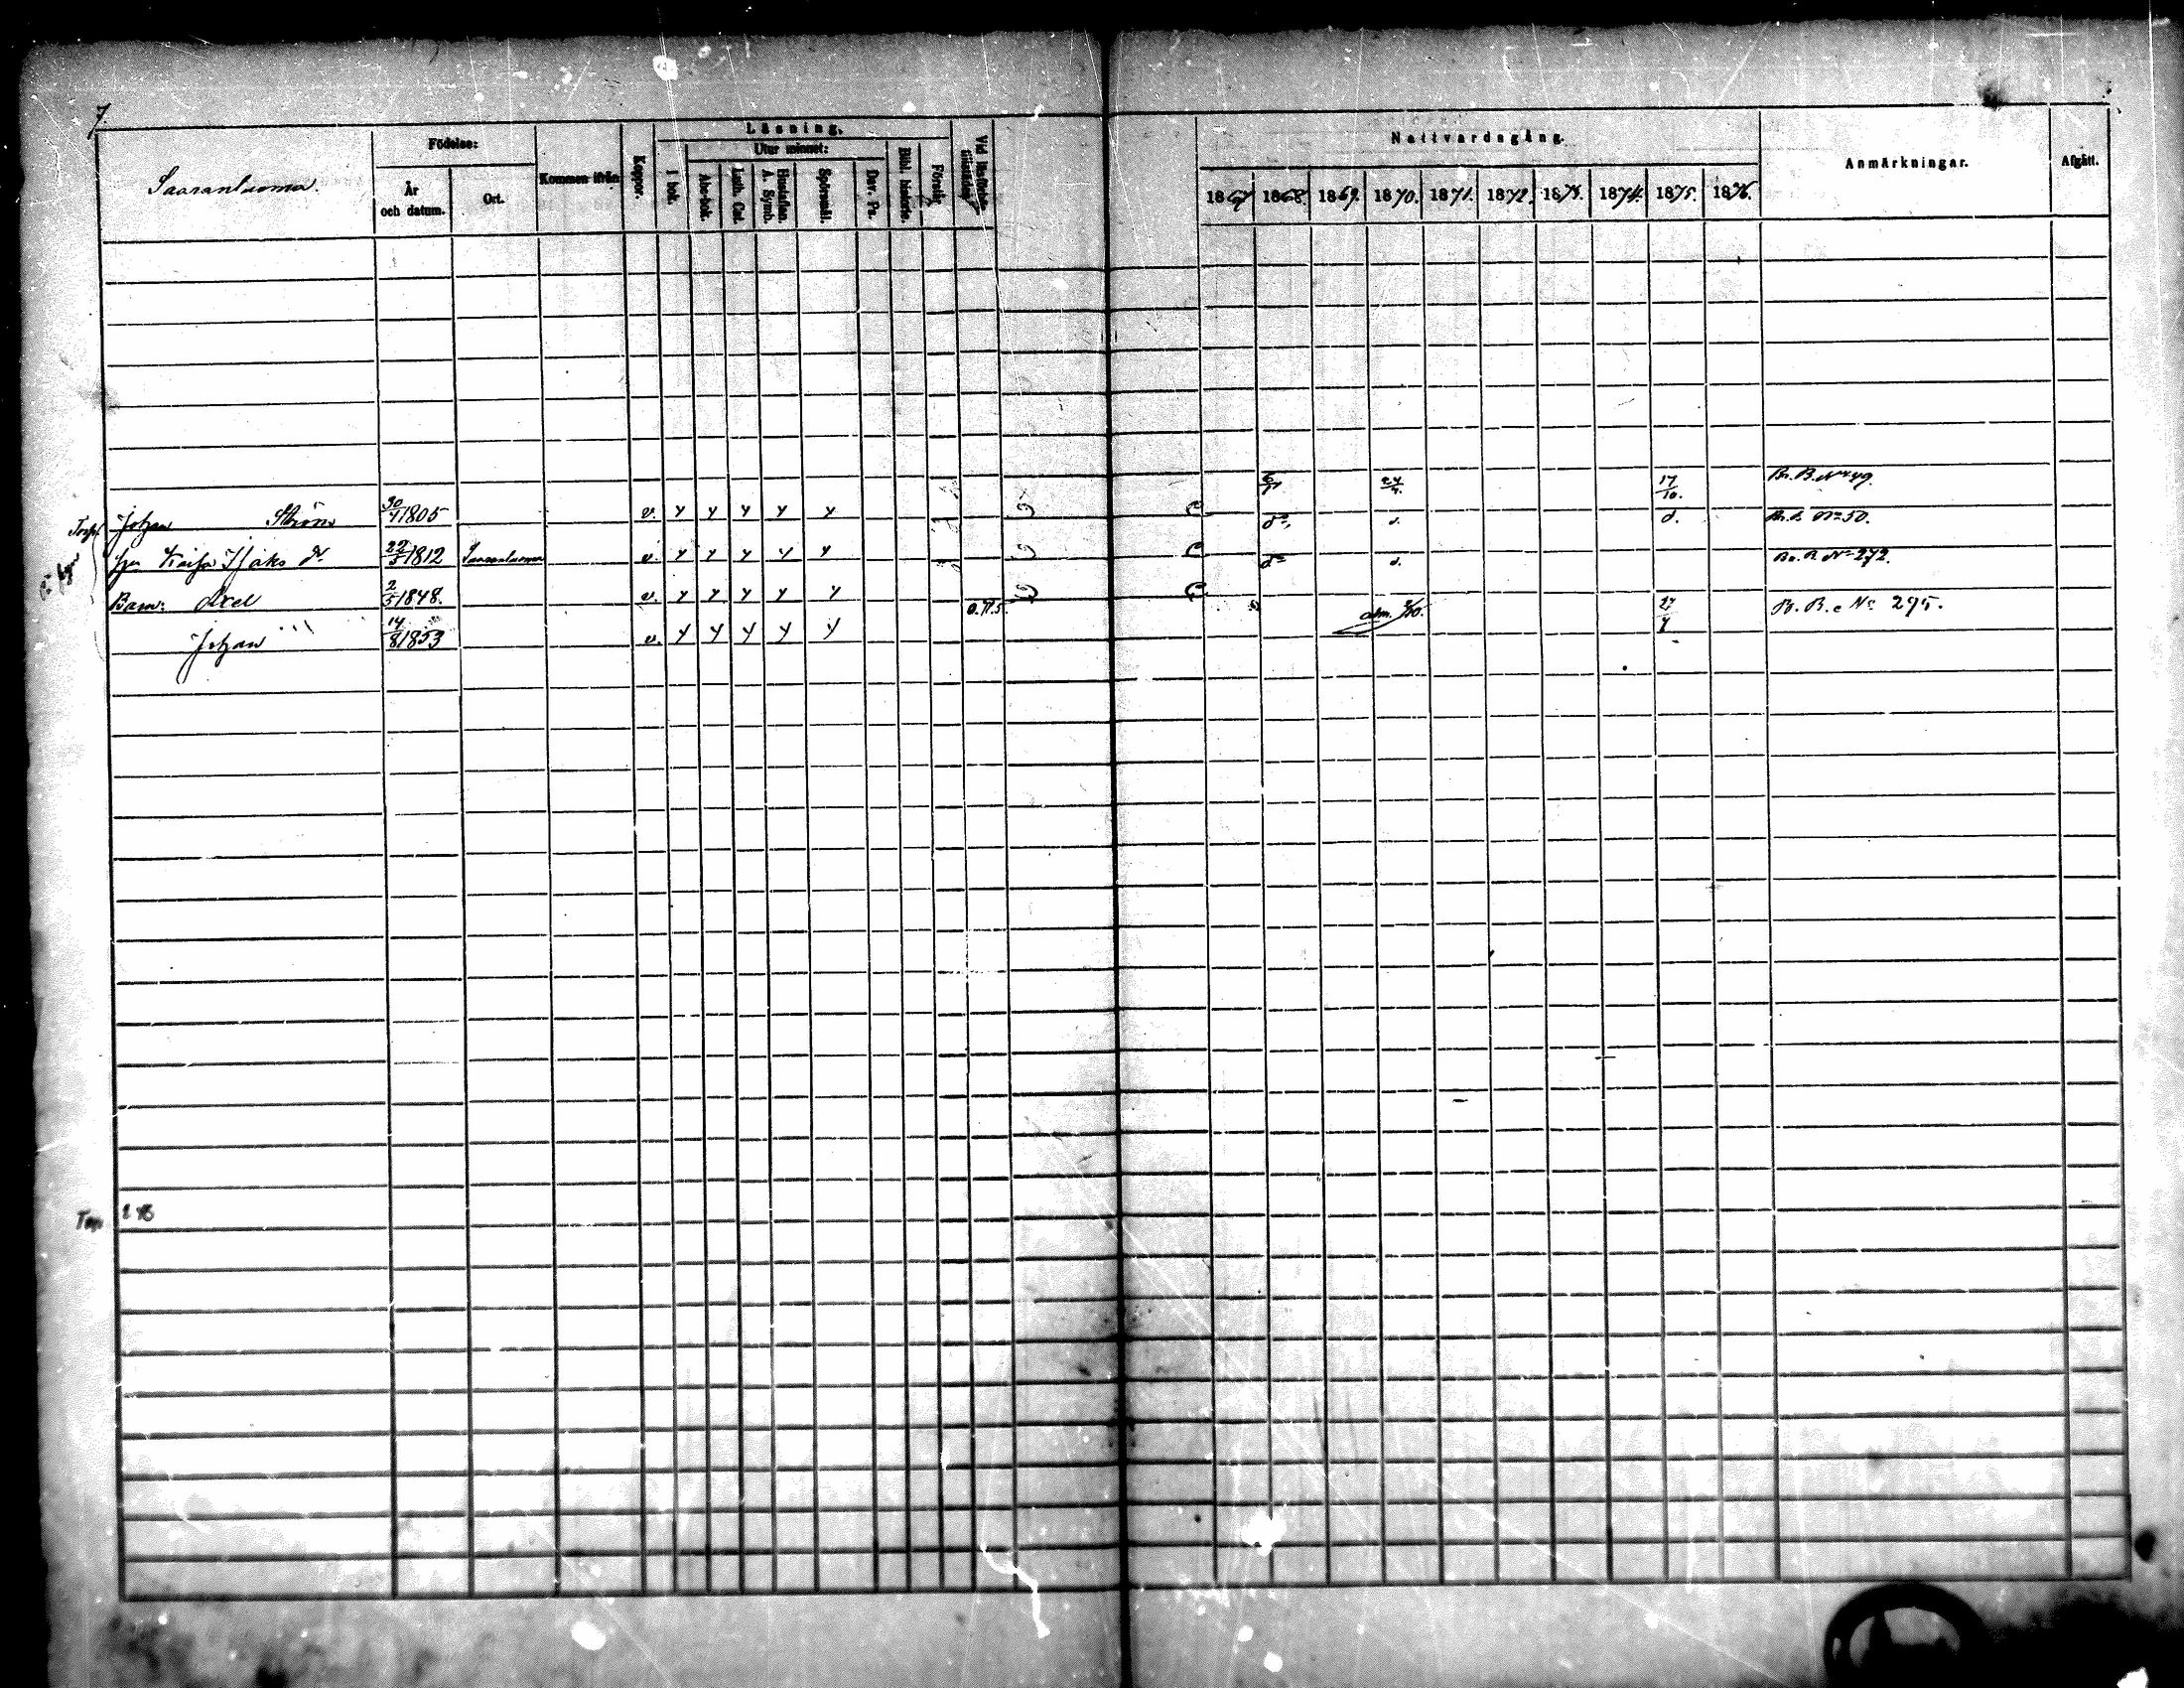 7
Saaranluoma.
Födelse:
År och datum.
Ort.
Kommen ifrån
Koppor.
Läsning.
I bok.
Utur minnet:
Abc-bok.
Luth. Cat.
Hustaflan. A. Symb.
Spörsmål.
Dav. Ps.
Bibl. historie.
Förstår
Nattvardsgång.
1867 1868. 1869. 1870. 1871. 1872. 1873. 1874. 1875. 1876.
Anmärkningar.
Afgått.
Johan Ström 30/4 1805 v. y y y y y 24/4. 17/10. Br. B. No 49.
Hu Kaisa Isaks dr 22/5 1812 Saaranluoma v. y y y y y do d. d. Br. B. No 50.
Barn: Axel 2/5 1848. v. y y y y y do d. Br. B. No 272.
Johan 14/8 1853 v. y y y y y adm. 27 B. B. No 295.